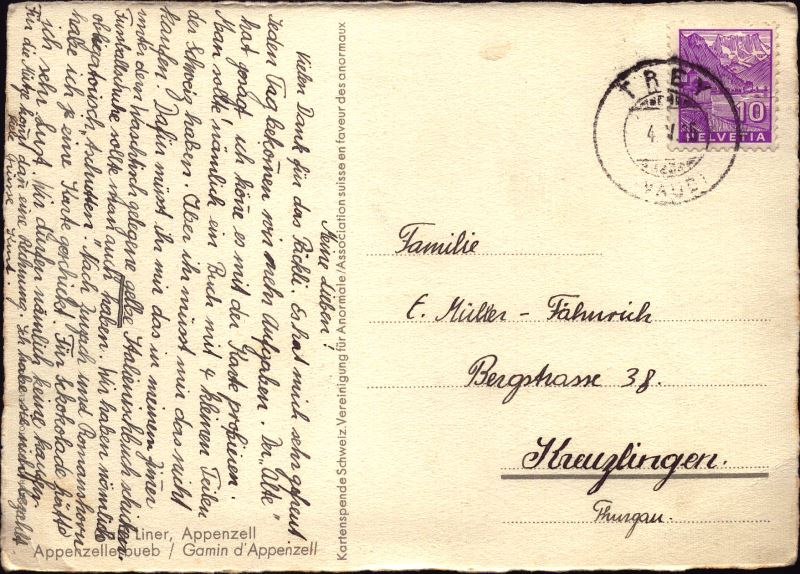 Meine Lieben!
Vielen Dank für das Päckli. Es hat mich sehr gefreut.
Jeden Tag bekommen wir mehr Aufgaben. Der „Alte"
hat gesagt, ich könne es mit der Karte probieren.
Man sollte nämlich ein Buch mit 4 kleinen Teilen
der Schweiz haben. Aber ihr müsst mir das nicht
kaufen. Dafür müsst ihr mir das in meinem Zimer
unter dem Wandtisch gelegene gelbe Italienischbuch schicken.
Fussballschuhe sollte ich auch haben. Wir haben nämlich
obligatorisch „tschutten". Nach Zürich und Romanshorn
habe ich je eine Karte geschickt. Für Schokolade hätte
ich sehr Lust. Wir dürfen nämlich keine kaufen.
Für die Mütze kommt dan eine Rechnung. Ich habe sie nicht bezahlt.
Viele Grüsse Kurt.
Liner, Appenzell
Appenzellerbueb / Gamin d'Appenzell
Kartenspende Schweiz. Vereinigung für Anormale / Association suisse en faveur des anormaux
TREY
(VAUD)
10
HELVETIA
Familie
E. Müller - Fähnrich
Bergstrasse 38.
Kreuzlingen.
Thurgau.